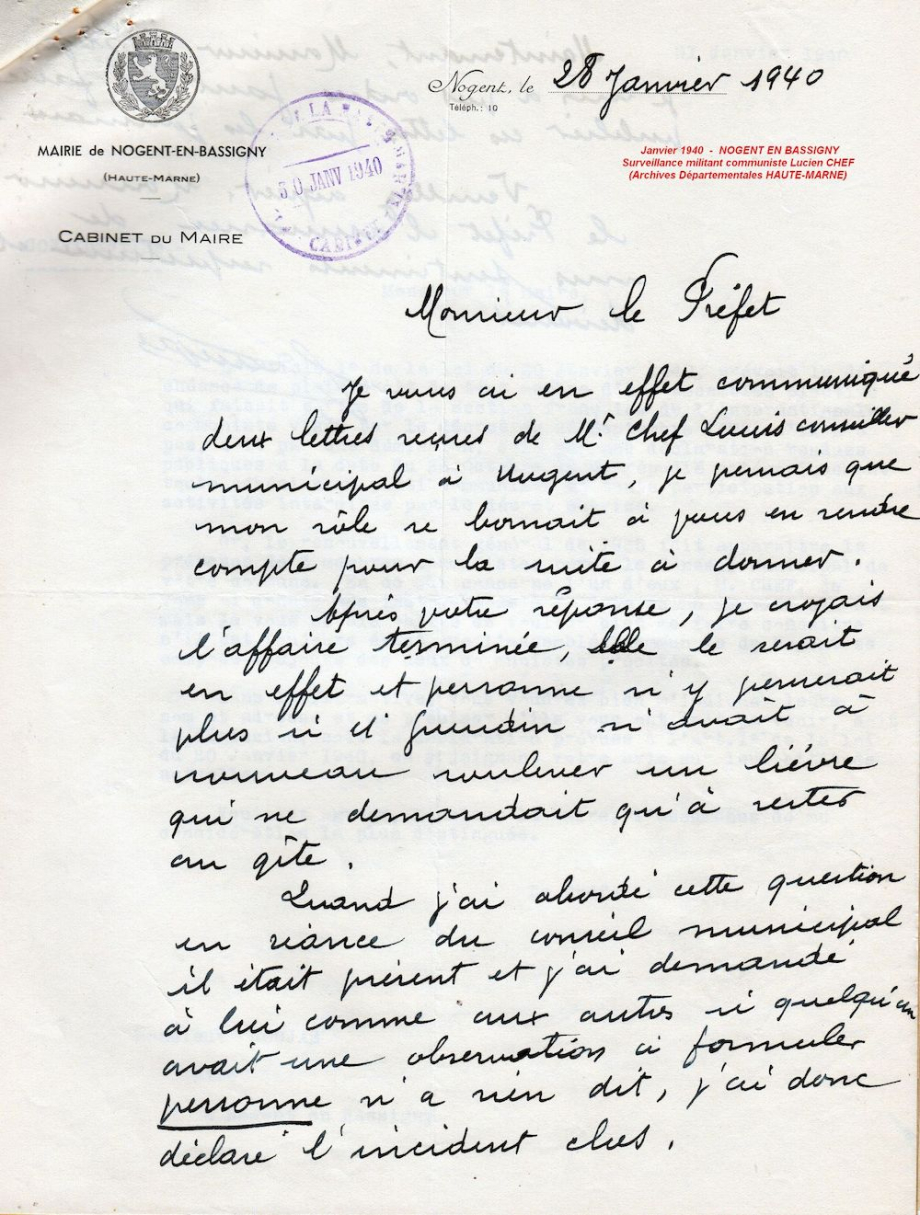 Nogent, le 28 Janvier 1940
Téléph.: 10
MAIRIE de NOGENT-EN-BASSIGNY
(HAUTE-MARNE)
CABINET DU MAIRE
30 JANV 1940
CABINET
Janvier 1940 - NOGENT EN BASSIGNY
Surveillance militant communiste Lucien CHEF
(Archives Départementales HAUTE-MARNE)
Monsieur le Préfet
Je vous ai en effet communiqué
deux lettres reçues de Mr Chef Louis conseiller
municipal à Nogent, je pensais que
mon rôle se bornait à vous en rendre
compte pour la suite à donner.
Après votre réponse, je croyais
l'affaire terminée, elle le serait
en effet et personne n'y penserait
plus si Mr n'avait à
nouveau soulever un lièvre
qui ne demandait qu'à rester
au gîte.
Quand j'ai abordé cette question
en séance du conseil municipal
il était présent et j'ai demandé
à lui comme aux autres si quelqu'un
avait une observation à formuler
personne n'a rien dit, j'ai donc
déclaré l'incident clos.